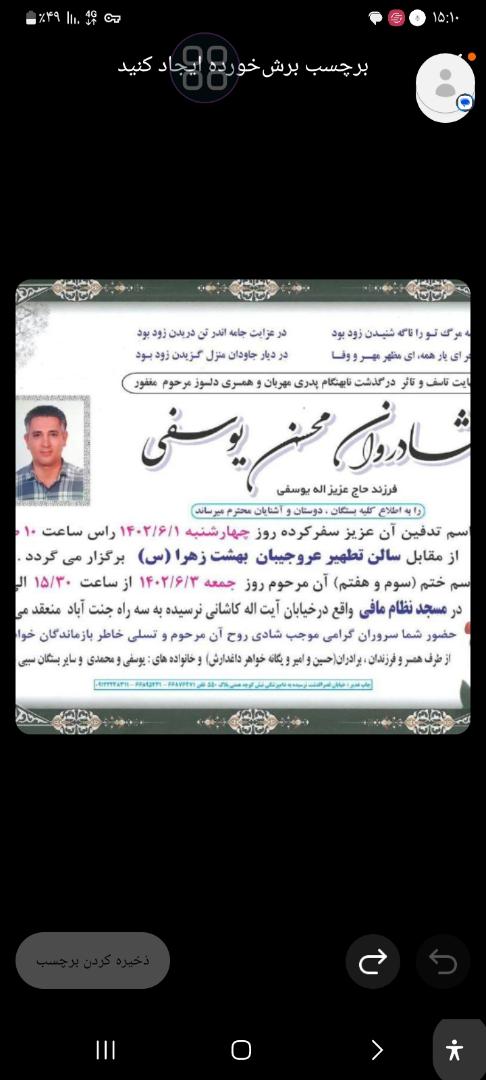 ۱۵:۱۰
٪۴۹
4G
برچسب برش‌خورده ایجاد کنید
مرگ تو را ناگه شنیدن زود بود در عزایت جامه اندر تن دریدن زود بود
ای یار همه، ای مظهر مهر و وفا در دیار جاودان منزل گزیدن زود بود
تاسف و تاثر درگذشت نابهنگام پدری مهربان و همسری دلسوز مرحوم مغفور
شادروان محسن یوسفی
فرزند حاج عزیز اله یوسفی
را به اطلاع کلیه بستگان ، دوستان و آشنایان محترم میرساند
اسم تدفین آن عزیز سفرکرده روز چهارشنبه ۱۴۰۲/۶/۱ راس ساعت ۱۰
از مقابل سالن تطهیر عروجیبان بهشت زهرا (س) برگزار می گردد .
سم ختم (سوم و هفتم) آن مرحوم روز جمعه ۱۴۰۲/۶/۳ از ساعت ۱۵/۳۰ الی
در مسجد نظام مافی واقع درخیابان آیت اله کاشانی نرسیده به سه راه جنت آباد منعقد می
حضور شما سروران گرامی موجب شادی روح آن مرحوم و تسلی خاطر بازماندگان خواه
از طرف همسر و فرزندان ، برادران(حسین و امیر و یگانه خواهر داغدارش) و خانواده های : یوسفی و محمدی و سایر بستگان سببی
ذخیره کردن برچسب